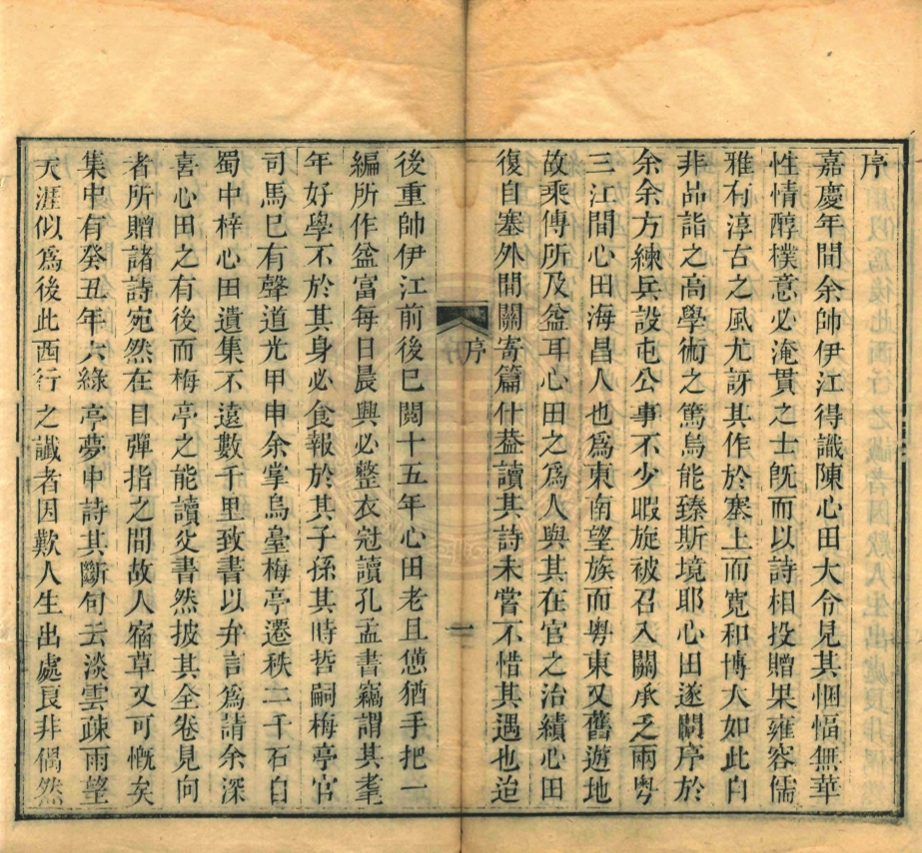 序
嘉慶年間余帥伊江得識陳心田大令見其悃愊無華
性情醇樸意必淹貫之士旣而以詩相投贈果雍容儒
雅有淳古之風尤訝其作於塞上而寬和博大如此自
非品詣之高學術之篤烏能臻斯境耶心田遂關序於
余余方練兵設屯公事不少暇旋被召入關承乏兩粤
三江間心田海昌人也爲東南望族而粤東又舊遊地
故乘傳所及益耳心田之爲人與其在官之治績心田
復自塞外間關寄篇什葢讀其詩未嘗不惜其遇也迨
序
一
後重帥伊江前後已閱十五年心田老且憊猶手把一
編所作益富每日晨興必整衣冠讀孔孟書竊謂其耄
年好學不於其身必食報於其子孫其時哲嗣梅亭官
司馬已有聲道光甲申余掌烏臺梅亭遷秩二千石自
蜀中梓心田遺集不遠數千里致書以弁言爲請余深
喜心田之有後而梅亭之能讀父書然披其全卷見向
者所贈諸詩宛然在目彈指之間故人宿草又可慨矣
集中有癸丑年六綠亭夢中詩其斷句云淡雲疎雨望
天涯似爲後此西行之讖者因歎人生出處良非偶然